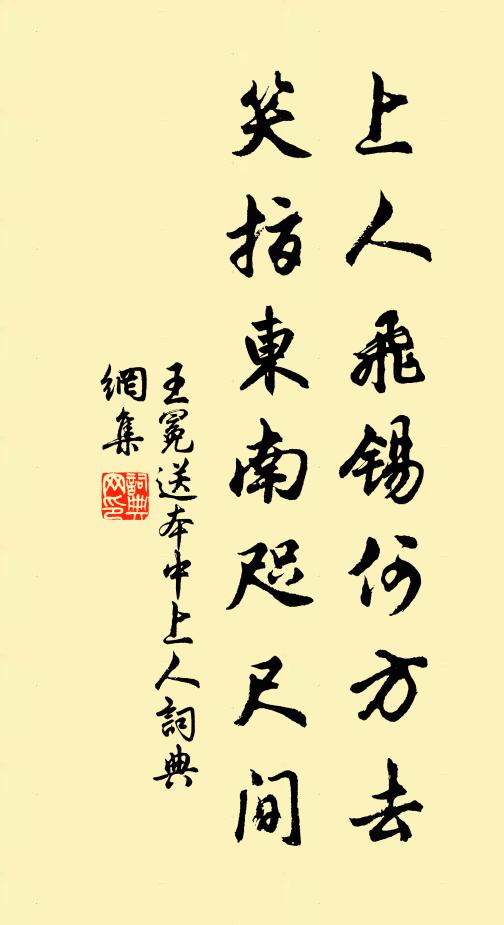 上人飛錫何方去
笑指東南咫尺間
王冕送本中上人詞典
網集
詞典
網印